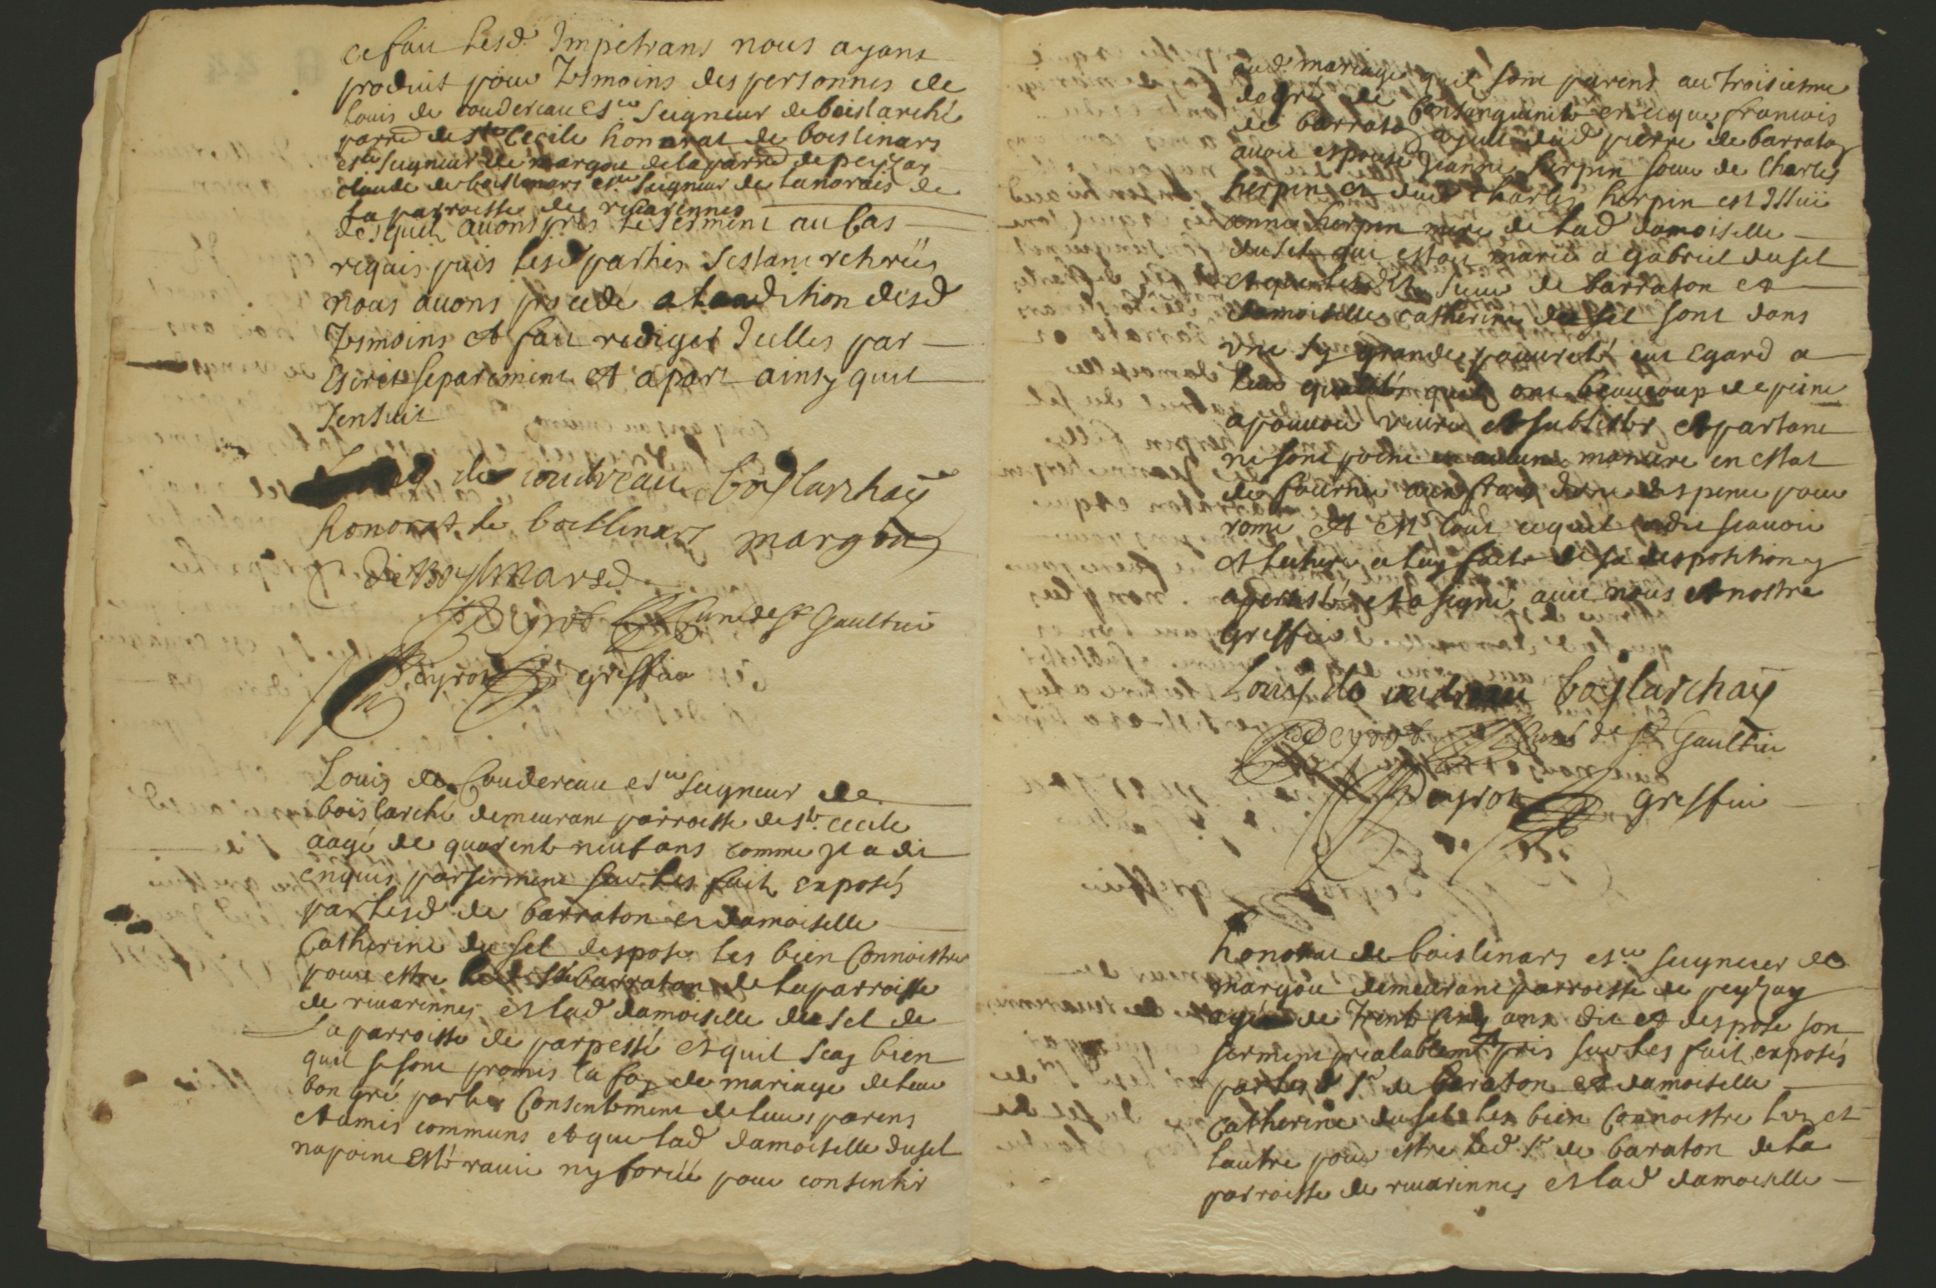 ce fait lesd. Impetrans nous ayans
produit pour Tesmoins des personnes de
Louis de coudereau escr Seigneur de boislarché
parre de Ste Cecile honorat de boislinars
escr seigneur de margou de la parre de peyzay
claude de boislinars escr seigneur de lanorais de
la parroisse de rivarennes
desquels avons pris le serment au cas
requis puis lesd parties sestant retirées
nous avons procedé a laudition desd
Tesmoins et fait rediger Icelles par
Escrit separement et apart ainsy quil
sensuit
de coudreau boyslarchay
honorat de boeslinars margou
De Boyslinars
Peyrot curé de St Gaultier
Peyrot greffier
Louis de Coudereau escr seigneur de
boislarché demeurant parroisse de Ste Cecile
aagé de quarente neuf ans comme Il a dit
enquis par serment sur les fait exposés
par lesd de barraton et damoiselle
Catherine du sel despose les bien connoistre
pour estre led sr barraton de la parroisse
de rivarennes et lad damoiselle du sel de
la parroisse de parpessé et quil scay bien
quil se sont promis la foy de mariage de leur
bon gré par les Consentement de leurs parens
et amis communs et que lad damoiselle dusel
na point esté ravie ny forcée pour consentir
aud mariage quil sont parens au troisiesme
degré de Consanguinité en ce que francois
de barraton ayeul dud pierre de barraton
avoit espousé Jeanne herpin soeur de Charles
herpin et dud Charles herpin est Issue
anne herpin mere de lad damoiselle
dusel qui estoit mariée a gabriel dusel
et que lesdit sieur de barraton et
damoiselle catherine du sel sont dans
une sy grande pauvreté eut Egard a
leur qualités quils ont beaucoup de peine
a pouvoir vivre et subsister et partant
ne sont point en aulcune maniere en estat
de fournir aux frais dune despence pour
rome et est tout ce quil a dit scavoir
et lecture a luy faite de sa despotition y
a persisté et a signé avec nous et nostre
Greffier
Louys de coudreau boyslarchay
Peyrot curé de St Gaultier
Peyrot greffier
honorat de boislinars escr seigneur de
margou demeurant parroisse de peyzay
agé de Trente Cinq ans dit et despose son
serment prealablemt pris sur les fait exposés
par lesd sr de baraton et damoiselle
Catherine dusel les bien connoistre lun et
lautre pour estre led. sr de baraton de la
parroisse de rivarennes et lad damoiselle